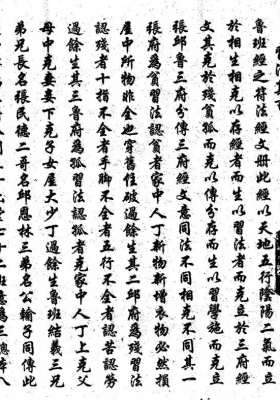 魯班經之符法經文册此經以天地五行陰陽二氣而立
於相生相克以存經者而生以習法者而克立於三府經
文其克於殘貧孤而克以傳分存而生以習學施而克立
張邱魯三府分傳三府經文意同法不同相克不同其一
張府為貧習法認貧者家中人丁新物新增衣物必然損
屋中所物非全也穿舊住破過餘生其二邱府為殘習法
認殘者十指不全者手脚不全者五行不全者認苦認勞
過餘生其三魯府為孤習法認孤者克家中人丁上克父
母中克妻妾下克子女屋大少丁過餘生魯班結義三兄
弟兄長名張民德二哥名邱恩林三弟名公輸子同傳此